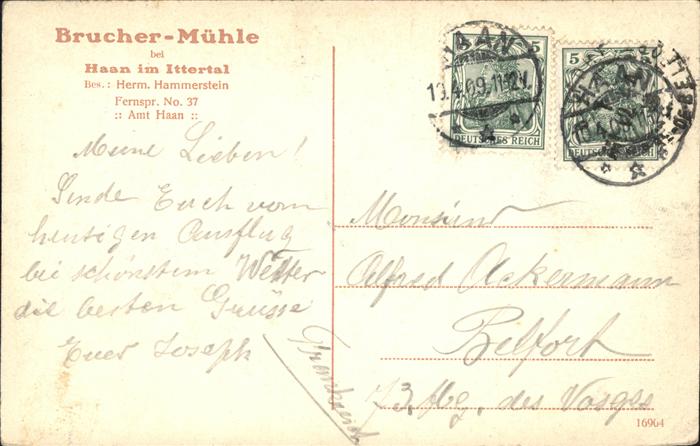 Brucher-Mühle
bei
Haan im Ittertal
Bes.: Herm. Hammerstein
Fernspr. No. 37
:: Amt Haan ::
Meine Lieben!
Sende Euch vom
heutigen Ausflug
bei schönstem Wetter
die besten Grüsse
Euer Joseph
HAAN
13.4.09.11-12V.
5
DEUTSCHES REICH
5
HAAN
DEUTSCHES REICH
Monsieur
Alfred Ackermann
Belfort
73, fbg. des Vosges
Frankreich
16964